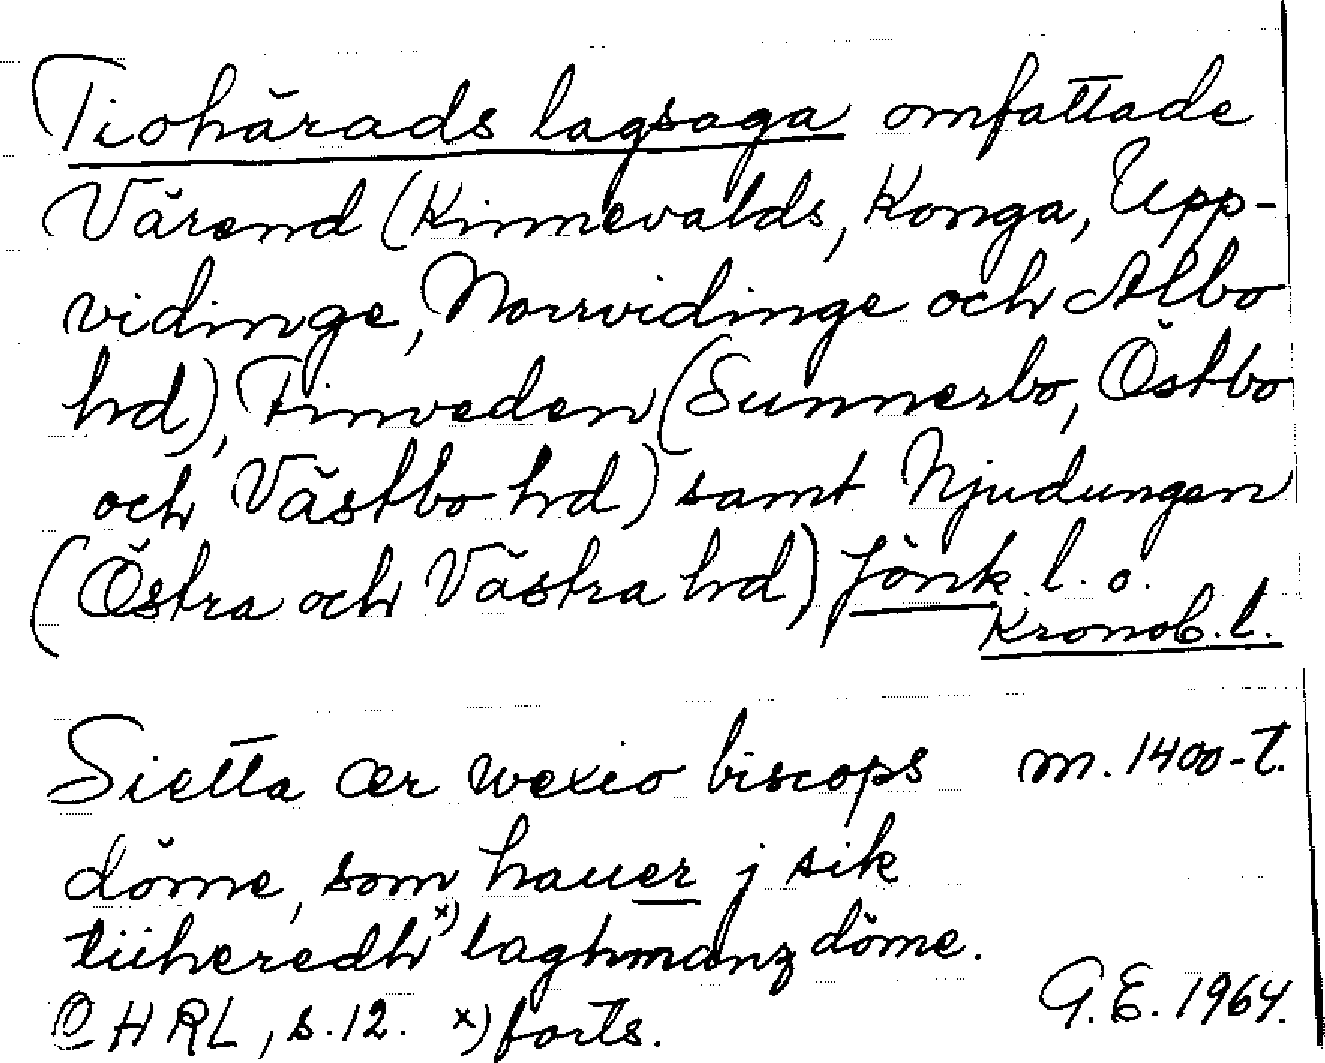 Tiohärads lagsaga omfattade
Värend (Kinnevalds, Konga, Upp-
vidinge, Norrvidinge och Albo
hrd), Finveden (Sunnerbo, Östbo
och Västbo hrd) samt Njudungen
(Östra och Västra hrd) Jönk. l. o.
Kronob. l.
Sietta ær wexio biscops m. 1400-t.
döme, som hauer j sik
tiiheredh x) laghmanz döme.
HRL, s. 12. x) forts. G. E. 1964.